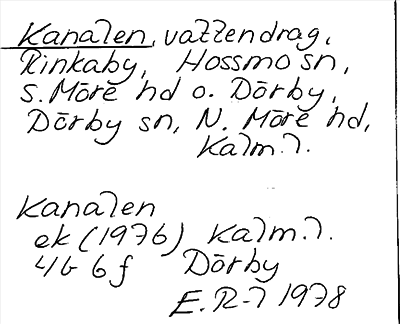 Kanalen, vattendrag,
Rinkaby, Hossmo sn,
S. Möre hd o. Dörby,
Dörby sn, N. Möre hd,
Kalm. l.
Kanalen
ek (1976) Kalm. l.
4G 6f Dörby
E. R-l 1978